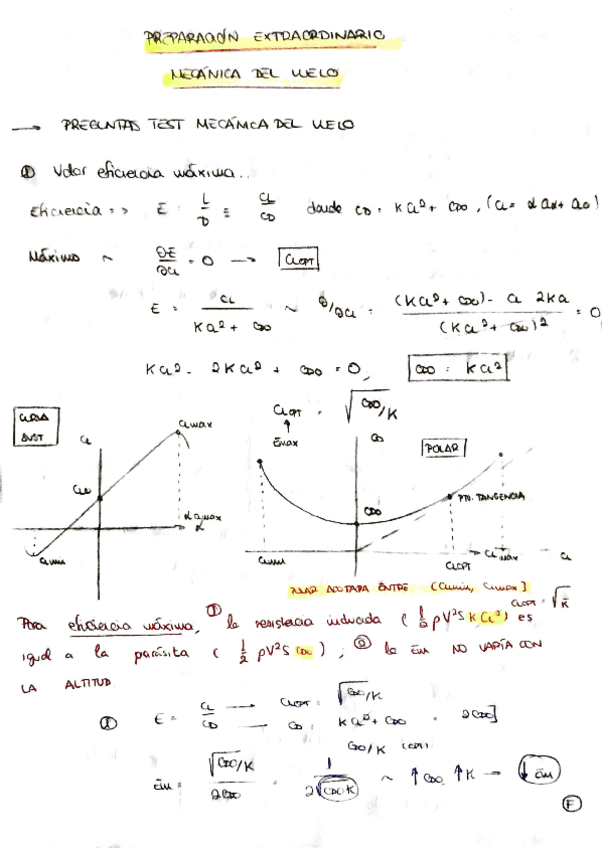 PREPARACIÓN EXTRAORDINARIO
MECÁNICA DEL VUELO
→ PREGUNTAS TEST MECÁNICA DEL VUELO
① Valor eficiencia máxima...
Eficiencia => E = L/D = CL/CD donde CD = K CL² + CD0, (CL =
Máximo ~ ∂E/∂CL = 0 → CLOPT
E = CL / (K CL² + CD0) ~ ∂/∂CL = ((K CL² + CD0) - CL 2K CL) / (K CL² + CD0)² = 0
K CL² - 2K CL² + CD0 = 0, CD0 = K CL²
CLOPT = √(CD0/K)
↑
Emax
CURVA
SUST
CL
CLmax
CL0
α CLmax
α
CLmin
CD
POLAR
CD0
PTO. TANGENCIA
CLmin
CLOPT
CLmax
CL
POLAR ACOTADA ENTRE [CLmin, CLmax]
Para eficiencia máxima, ① la resistencia inducida (½ ρV²S K CL²) es
igual a la parásita (½ ρV²S CD0); ② la Em NO VARÍA CON
LA ALTITUD.
① E = CL/CD → CLOPT = √(CD0/K)
→ CD = K CL² + CD0 = 2CD0]
CD0/K (OPT)
Em = √(CD0/K) / 2CD0 = 1 / 2√(CD0 K) ~ ↑ CD0, ↑ K → ↓ Em
F